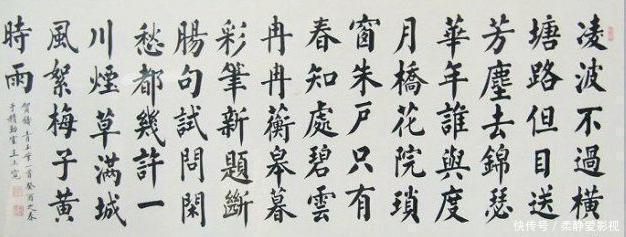 凌波不過橫
塘路但目送
芳塵去錦瑟
華年誰與度
月橋花院瑣
窗朱戶只有
春知處碧雲
冉冉蘅皋暮
彩筆新題斷
腸句試問閑
愁都幾許一
川煙草滿城
風絮梅子黃
時雨
賀鑄青玉案一首癸酉之春
快传号 / 柔静爱影视